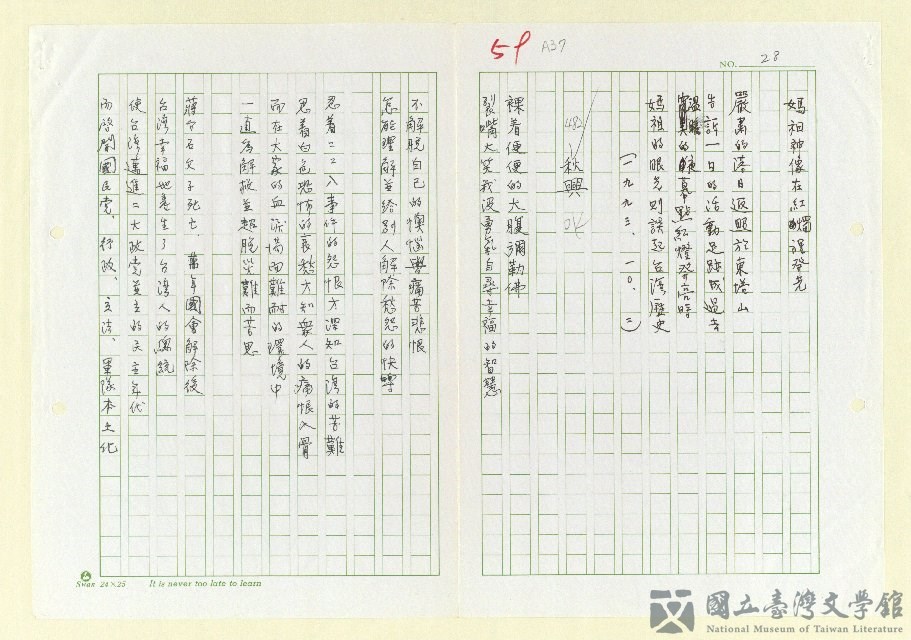 59 A37
NO. 28
媽祖神像在紅燭裡發光
嚴肅的落日返照於東塔山
告訴一日的活動足跡成過去
暮點紅燈發亮時
媽祖的眼光則談起台灣歷史
(一九九三、一〇、二)
48. 秋興 OK
裸着便便的大腹彌勒佛
裂嘴大笑我沒勇氣自尋幸福的智慧
不解脫自己的懊惱與痛苦悲恨
怎能理解並給別人解除愁怨的快轉
忍着二二八事件的怨恨方深知台灣的苦難
忍着白色恐怖的哀愁方知眾人的痛恨入骨
而在大家的血淚場面難耐的環境中
一直為解救並超脫災難而苦思
蔣介石父子死亡、萬年國會解除後
台灣幸福地誕生了台灣人的總統
使台灣邁進二大政黨並立的民主年代
而啓開國民黨、行政、立法、軍隊本土化
Swan 24×25 It is never too late to learn
國立臺灣文學館
National Museum of Taiwan Literature